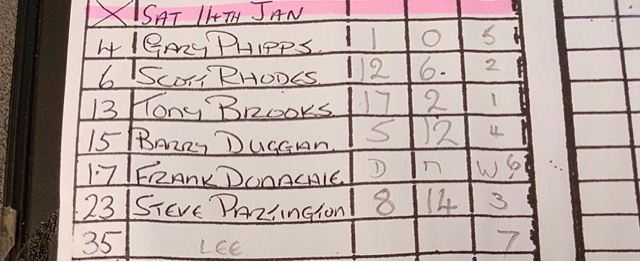 X SAT 14TH JAN
4 GARY PHIPPS. 1 0 5
6 SCOTT RHODES 12 6. 2
13 TONY BROOKS 17 2 1
15 BARRY DUGGAN. 5 12 4
17 FRANK DONACHIE D n W 6
23 STEVE PARTINGTON 8 14 3
35 LEE 7